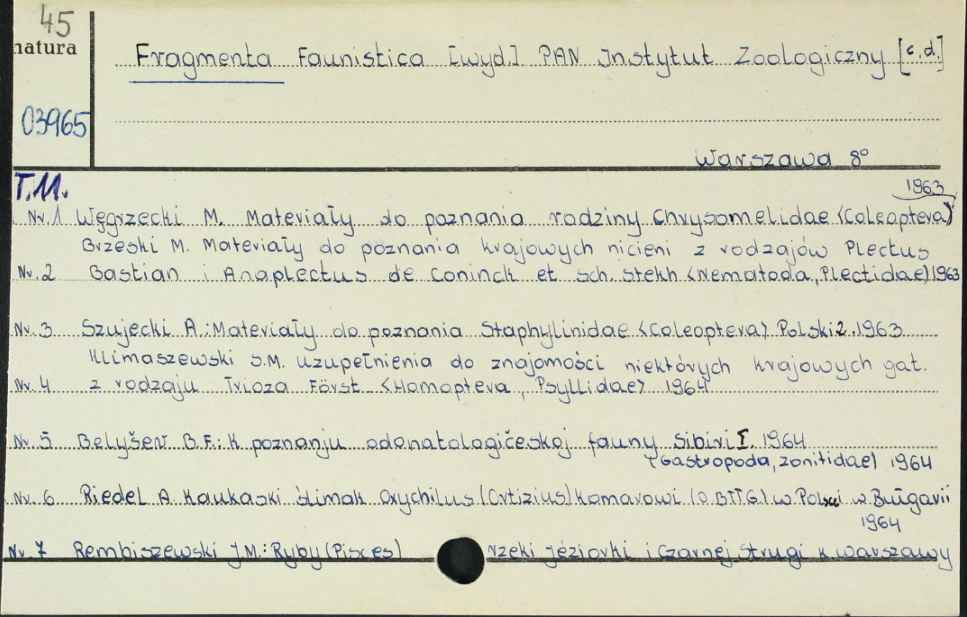 45
natura
Fragmenta Faunistica [wyd.] PAN Instytut Zoologiczny [c.d.]
03965
Warszawa 8°
T.11.
1963
Nr.1 Węgrzecki M. Materiały do poznania rodziny Chrysomelidae (Coleoptera)
Brzeski M. Materiały do poznania krajowych nicieni z rodzajów Plectus
Nr.2 Bastian i Anaplectus de Coninck et Sch. Stekh (Nematoda, Plectidae) 1963
Nr.3 Szujecki A.: Materiały do poznania Staphylinidae (Coleoptera) Polski 2. 1963
Klimaszewski S.M. Uzupełnienia do znajomości niektórych krajowych gat.
Nr.4 z rodzaju Trioza Först. (Homoptera, Psyllidae) 1964
Nr.5 Belyšev B.F.: K poznanju odonatologičeskoj fauny Sibiri I. 1964
(Gastropoda, Zonitidae) 1964
Nr.6 Riedel A. Kaukaski ślimak Oxychilus (Ortizius) komarowi (O.BTTG.) w Polsce i w Bułgarii
1964
Nr.7 Rembiszewski J.M.: Ryby (Pisces) rzeki Jeziorki i Czarnej Strugi k. Warszawy